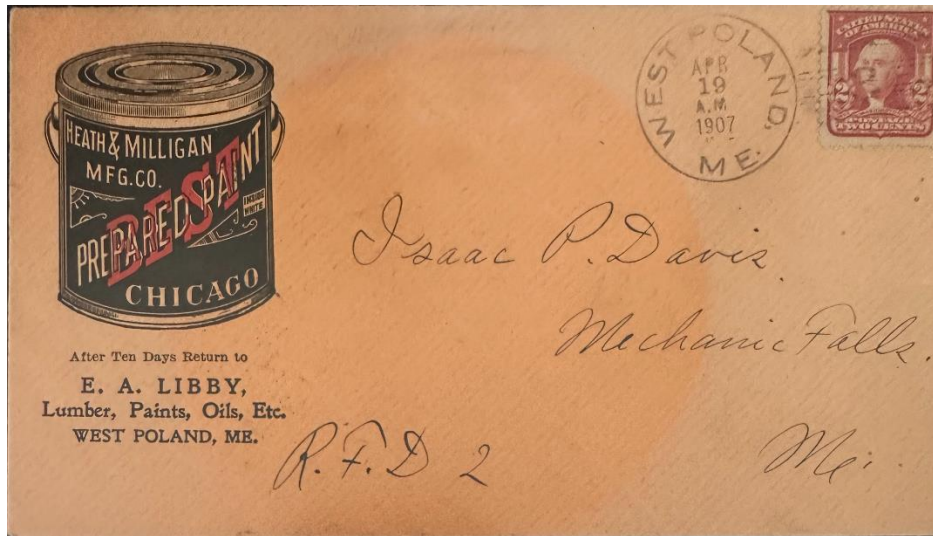 HEATH & MILLIGAN
MFG. CO.
BEST
PREPARED PAINT
CHICAGO
After Ten Days Return to
E. A. LIBBY,
Lumber, Paints, Oils, Etc.
WEST POLAND, ME.
WEST POLAND, ME.
APR
19
A.M
1907
UNITED STATES
OF AMERICA
2 2
POSTAGE
TWO CENTS
Isaac P. Davis.
Mechanic Falls.
R.F.D 2
Me.